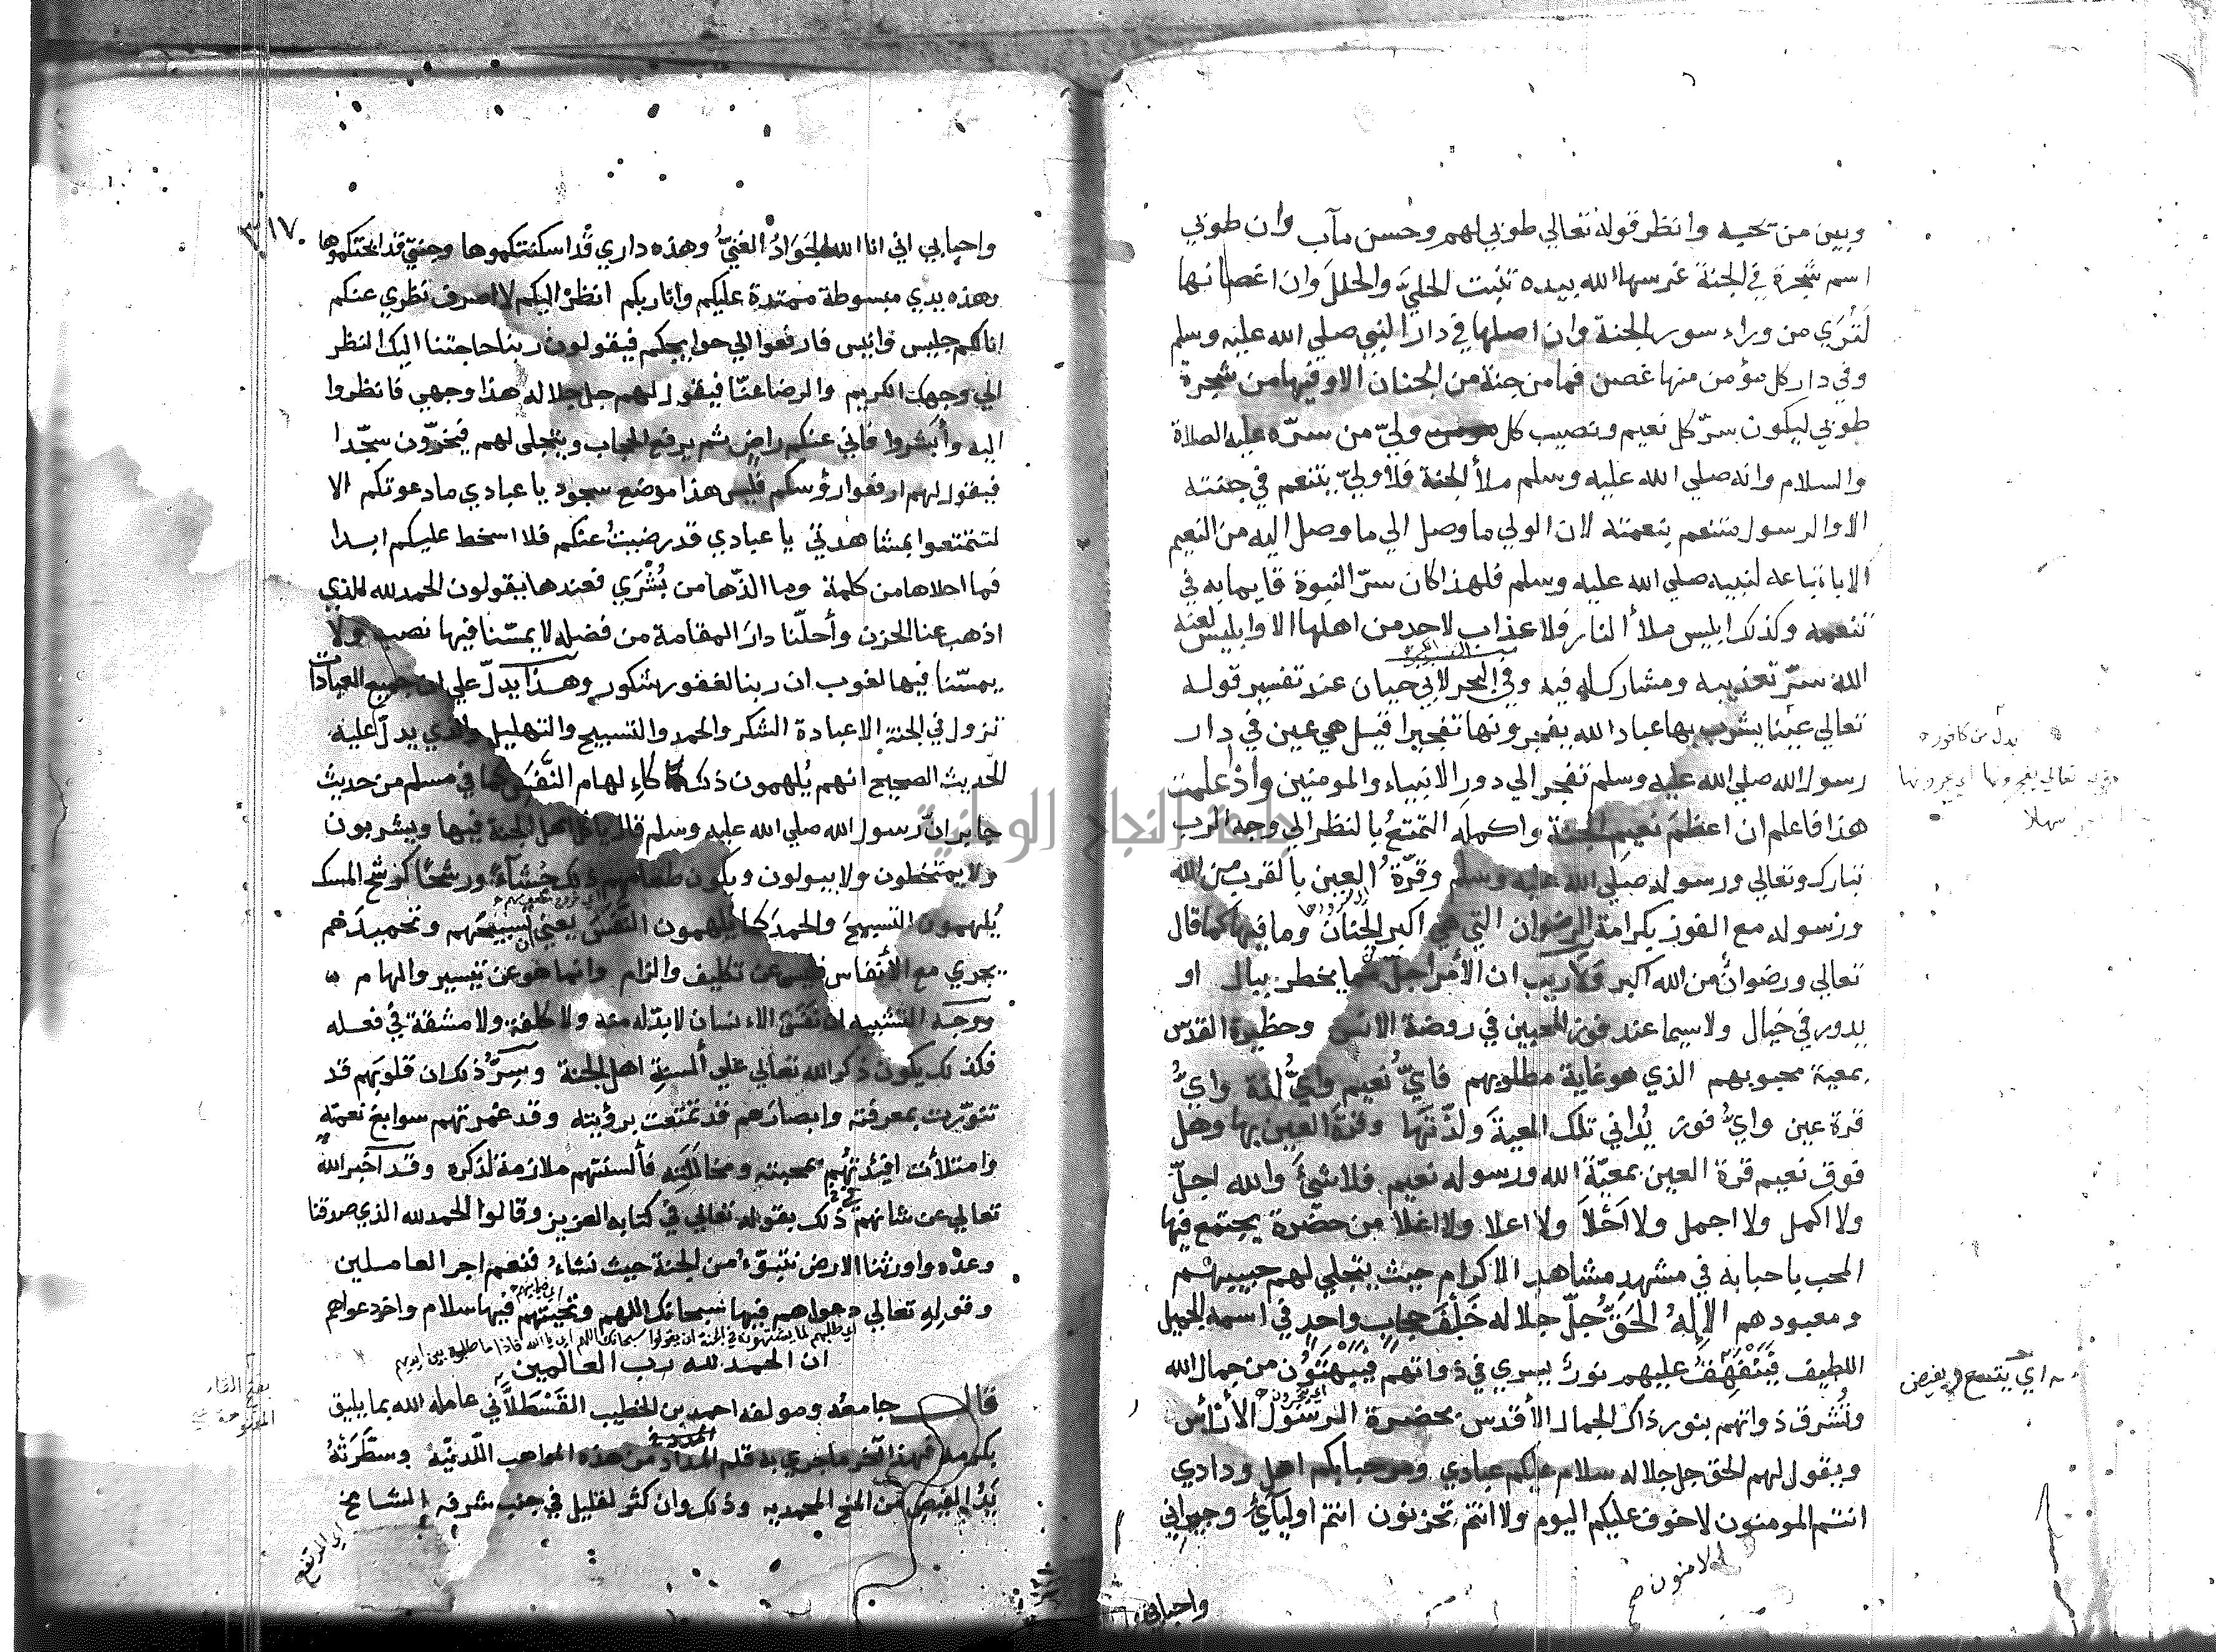 وبين من يحبه وانظر قوله تعالي طوبي لهم وحسن مآب وان طوبي
اسم شجرة في الجنة غرسها الله بيده تنبت الحليّ والحلل وان اغصانها
لتُرَي من وراء سور الجنة وان اصلها في دار النبي صلي الله عليه وسلم
وفي دار كل مؤمن منها غصن فما من جنة من الجنان الا وفيها من شجرة
طوبي ليكون سرّ كل نعيم ونصيب كل وليّ من سرّه عليه الصلاة
والسلام وانه صلي الله عليه وسلم ملأ الجنة فلا وليّ يتنعم في جنته
الا والرسول متنعم بنعمته لان الولي ما وصل الي ما وصل اليه من النعيم
الا باتباعه لنبيه صلي الله عليه وسلم فلهذا كان سرّ النبوة قايما به في
تنعمه وكذلك ابليس ملأ النار فلا عذاب لاحد من اهلها الا وابليس لعنه
الله سرّ تعذيبه ومشارك له فيه وفي البحر لابي حيان عند تفسير قوله
تعالي عينا يشرب بها عباد الله يفجرونها تفجيرا قيل هي عين في دار
رسول الله صلي الله عليه وسلم تفجر الي دور الانبياء والمومنين واذ علمت
هذا فاعلم ان اعظم نعيم الجنة واكمله التمتعُ بالنظر الي وجه الرب
تبارك وتعالي ورسوله صلي الله عليه وسلم وقرّةُ العين بالقرب من الله
ورسوله مع الفوز بكرامة الرضوان التي هي اكبر الجنان وما فيها كما قال
تعالي ورضوانٌ من الله اكبر ولا ريب ان الأمر اجل مما يخطر ببال او
يدور في خيال ولا سيما عند فوز المحبين في روضة الانس وحظيرة القدس
بمعية محبوبهم الذي هو غاية مطلوبهم فايّ نعيم وايُّ لذة وايُّ
قرة عين وايُّ فوز يُداني تلك المعية ولذّتها وقرة العين بها وهل
فوق نعيم قرة العين بمعيّة الله ورسوله نعيم فلا شيئ والله اجلّ
ولا اكمل ولا اجمل ولا احلا ولا اعلا ولا اغلا من حضرة يجتمع فيها
المحب باحبابه في مشهد مشاهد الاكرام حيث يتجلي لهم حبيبهم
ومعبودهم الإلهُ الحقُّ جلّ جلاله خَلْفَ حجاب واحد في اسمه الجميل
اللطيف فيَنْفَهِقُ عليهم نورٌ يسري في ذواتهم فيبهَتُون من جمال الله
وتُشرق ذواتهم بنور ذاك الجمال الأقدس بحضرة الرسول الأرأس
ويقول لهم الحق جل جلاله سلام عليكم عبادي ومرحبا بكم اهل ودادي
انتم المومنون لا خوف عليكم اليوم ولا انتم تحزنون انتم اوليآئي وجيراني
الامنون صح
واحبابي
بدل من كافور
تعالي يفجرونها
سهلا
اي يتسع ويفيض
٣١٧
واحبابي اني انا الله الجَوَادُ الغنيُّ وهذه داري قد اسكنتكموها وجنتي قد ابحتكموها
وهذه يدي مبسوطة ممتدة عليكم وانا ربكم انظر اليكم لا اصرف نظري عنكم
انا لكم جليس وانيس فارفعوا الي حوايجكم فيقولون ربنا حاجتنا اليك النظر
الي وجهك الكريم والرضا عنّا فيقول لهم جل جلاله هذا وجهي فانظروا
اليه وأبشروا فاني عنكم راض ثم يرفع الحجاب ويتجلي لهم فيخرّون سجّدا
فيقول لهم ارفعوا رؤسكم فليس هذا موضع سجود يا عبادي ما دعوتكم الا
لتتمتعوا بمشاهدتي يا عبادي قد رضيتُ عنكم فلا اسخط عليكم ابدا
فما احلاها من كلمة وما الذّها من بُشْرَي فعندها يقولون الحمد لله الذي
اذهب عنا الحزن وأحلّنا دارَ المقامة من فضله لا يمسّنا فيها نصب ولا
يمسّنا فيها لغوب ان ربنا لغفور شكور وهذا يدلّ علي ان جميع العبادات
تزول في الجنة الا عبادة الشكر والحمد والتسبيح والتهليل والذي يدل عليه
الحديث الصحيح انهم يُلهمون ذلك كالهام النَّفَس كما في مسلم من حديث
جابر انّ رسول الله صلي الله عليه وسلم قال يأكل اهل الجنة فيها ويشربون
ولا يمتخطون ولا يبولون ويكون طعامهم ذلك جُشآءً ورشحًا كرشح المسك
يُلهمون التسبيحَ والحمدَ كما يُلهمون النَّفَسَ يعني ان تسبيحَهم وتحميدَهم
يجري مع الأنفاس فليس عن تكليف والزام وانما هو عن تيسير والهام
ووجه التشبيه ان نَفَسَ الانسان لا بدّ له منه ولا كلفة ولا مشقة في فعله
فكذلك يكون ذكر الله تعالي علي ألسنةِ اهل الجنة وسِرُّ ذلك ان قلوبَهم قد
تنوّرت بمعرفته وابصارَهم قد تمتعت برؤيته وقد غمرتهم سوابغ نعمته
وامتلأت افئدتُهم بمحبته ومخالَلَتِه فألسنتهم ملازمة لذكره وقد اخبر الله
تعالي عن شانهم في ذلك بقوله تعالي في كتابه العزيز وقالوا الحمد لله الذي صدقنا
وعدَه واورثنا الارض نتبوّءُ من الجنة حيث نشاءُ فنعم اجر العاملين
وقوله تعالي دعواهم فيها سبحانك اللهم وتحيتهم فيها سلام واخر دعواهم
اي طلبهم لما يشتهونه في الجنة ان يقولوا سبحانك اللهم اي يا الله فاذا ما طلبوه بين ايديهم
ان الحمد لله رب العالمين
قال جامعُه ومولفه احمد بن الخطيب القَسْطَلاَّني عامله الله بما يليق
بكرمه فهذا آخر ما جري به قلم المداد من هذه المواهب اللّدنيّة وسطّرَتْهُ
يَدُ الفيض من المنح المحمديه وذلك وان كثر لقليل في جنب شرفه الشامخ
اي المرتفع
بفتح القاف
جامعة النجاح الوطنية